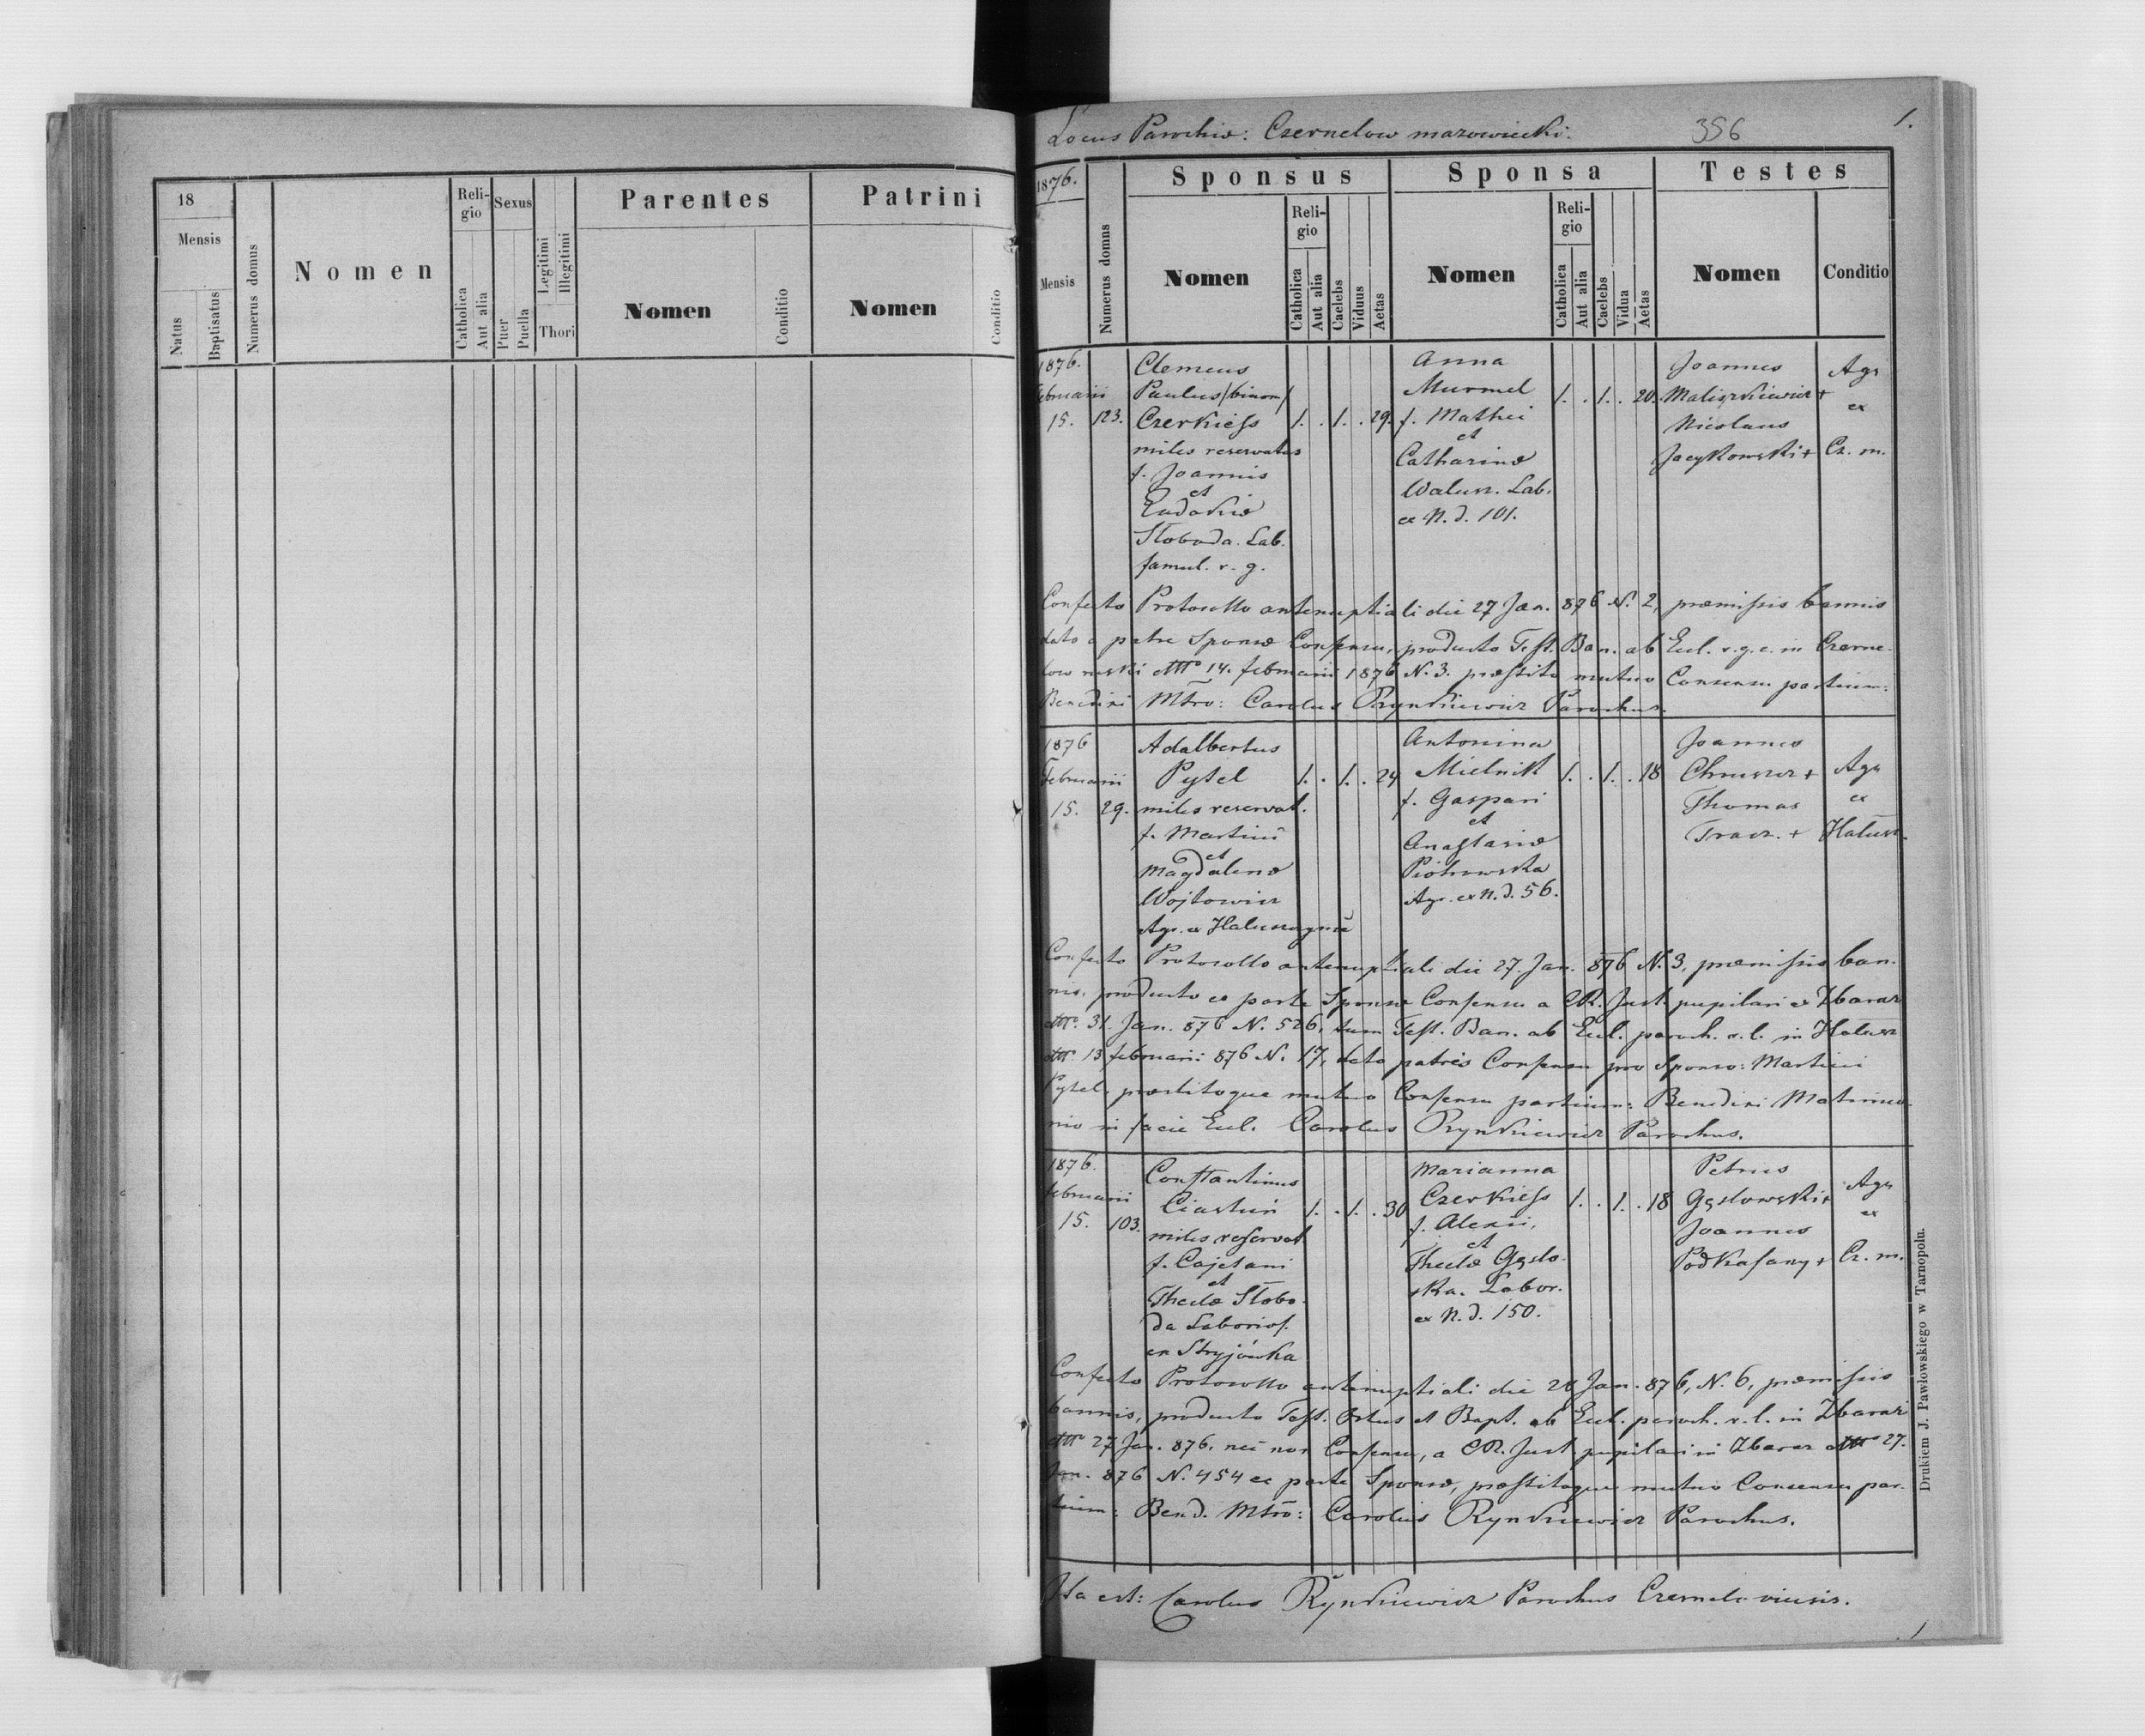 18
Mensis
Natus
Baptisatus
Numerus domus
Nomen
Religio
Catholica
Aut alia
Sexus
Puer
Puella
Legitimi
Illegitimi
Thori
Parentes
Nomen
Conditio
Patrini
Nomen
Conditio
Locus Parochiæ: Czernelow mazowiecki.
356
1.
1876.
Mensis
Numerus domus
Sponsus
Nomen
Reli-
gio
Catholica
Aut alia
Caelebs
Viduus
Aetas
Sponsa
Nomen
Reli-
gio
Catholica
Aut alia
Caelebs
Vidua
Aetas
Testes
Nomen
Conditio
1876.
Februarii
15. 123.
Clemens
Paulus /binom/
Czerkieſs 1. . 1. . 29.
miles reservatus
f. Joannis
et
Eudoxiæ
Słoboda. Lab.
famul. r. g.
Anna
Murmel 1. . 1. . 20.
f. Mathei
et
Catharinæ
Walusz. Lab.
ex N. d. 101.
Joannes
Maliszkiewicz +
Nicolaus
Jacykowski +
Agr
ex
Cz. m.
Confecto Protocollo antenuptiali die 27 Jan. 876 N. 2, præmiſsis bannis
dato a patre Sponsæ Conſensu, producto Teſt. Ban. ab Eccl. r. g. c. in Czerne-
low ruski ddto 14. februarii 1876 N. 3. præſtito mutuo Consensu partium:
Benedixi Mtro: Carolus Rynkiewicz Parochus.
1876
Februarii
15. 29.
Adalbertus
Pytel 1. . 1. . 24
miles reservat.
f. Martini
et
Magdalenæ
Wojtowicz
Agr. ex
Antonina
Mielnik 1. . 1. . 18
f. Gaspari
et
Anastasiæ
Piotrowska
Agr. ex N. d. 56.
Joannes
Chruszcz +
Thomas
Tracz. +
Agr
ex
Halusz.
Confecto Protocollo antenuptiali die 27. Jan. 876 N. 3, præmiſsis ban-
nis, producto ex parte Sponsæ Conſensu a CR. Jud. pupilari ex Zbaraz
ddto. 31. Jan. 876 N. 526, tum Teſt. Ban. ab Eccl. paroch. r. l. in Halusz
ddto. 13 februarii 876 N. 17, dato patris Conſensu pro Sponso: Martini
Pytel. præstitoque mutuo Conſensu partium: Benedixi Matrimo-
nio in facie Eccl. Carolus Rynkiewicz Parochus.
1876.
februarii
15. 103.
Conſtantinus
Ciastuń 1. . 1. . 30
miles reſervat.
f. Cajetani
et
Theclæ Słobo-
da Laborioſ.
ex Stryjówka
Marianna
Czerkieſs 1. . 1. . 18
f. Alexii,
et
Theclæ Gęsło-
ska. Labor.
ex N. d. 150.
Petrus
Gęslowski +
Joannes
Podkaſany +
Agr
ex
Cz. m.
Confecto Protocollo antenuptiali die 28 Jan. 876, N. 6, præmiſsis
bannis, producto Teſt. Ortus et Bapt. ab Eccl. paroch. r. l. in Zbaraż
ddto 27 Jan. 876. nec non Conſensu, a CR. Jud. pupilari in Zbaraz ddto 27.
Jan. 876 N. 454 ex parte Sponsæ, præſtitoque mutuo Consensu par-
tium: Bened. Mtro: Carolus Rynkiewicz Parochus.
Ita est: Carolus Rynkiewicz Parochus Czerneloviensis.
Drukiem J. Pawłowskiego w Tarnopolu.